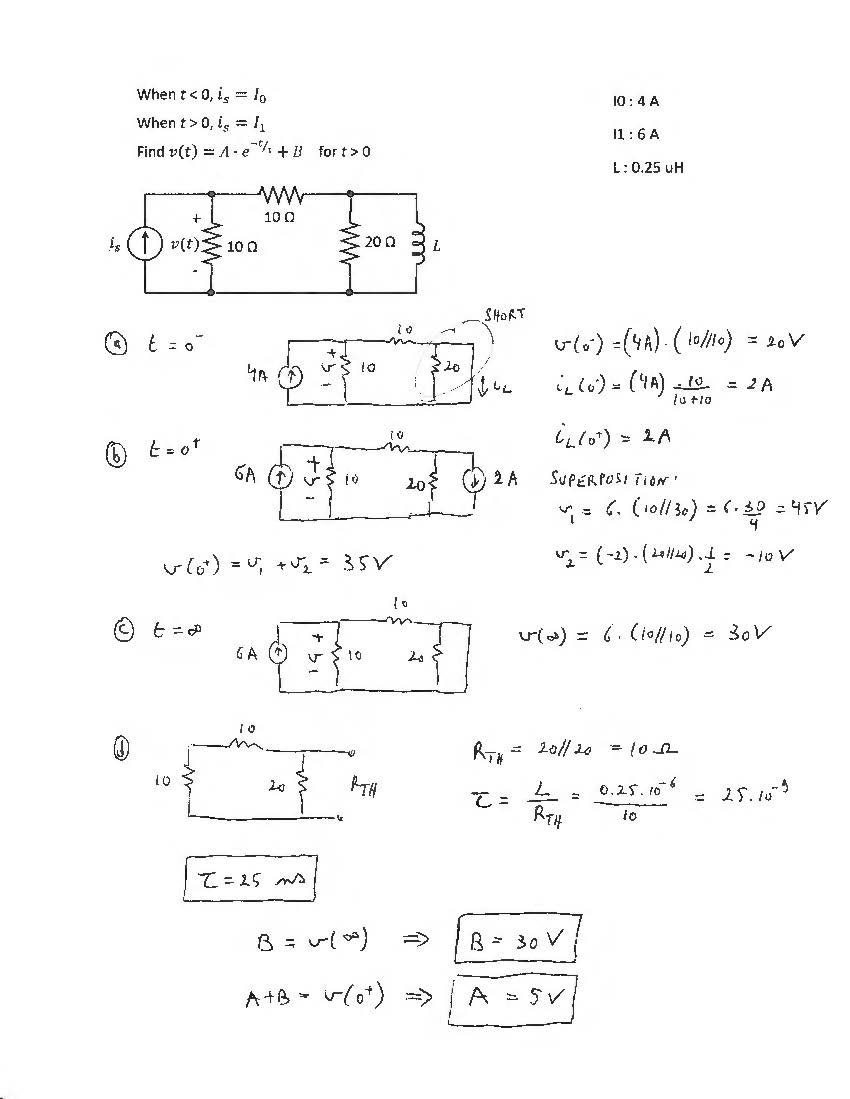 When t < 0, i_s = I_0
I0 : 4 A
When t > 0, i_s = I_1
I1 : 6 A
Find v(t) = A · e^{-t/τ} + B for t > 0
L : 0.25 uH
+ 10 Ω
i_s v(t) 10 Ω 20 Ω L
-
SHORT
(a) t = 0⁻
10
4A + v - 10 20 i_L
v(0⁻) = (4A) · (10//10) = 20V
i_L(0⁻) = (4A) 10/(10+10) = 2A
i_L(0⁺) = 2A
(b) t = 0⁺
10
6A + v - 10 20 2A
SUPERPOSITION:
v_1 = 6. (10//30) = 6. 30/4 = 45V
v_2 = (-2). (20//20). 1/2 = -10V
v(0⁺) = v_1 + v_2 = 35V
(c) t = ∞
10
6A + v - 10 20
v(∞) = 6. (10//10) = 30V
(d)
10
10 20 R_TH
R_TH = 20//20 = 10 Ω
τ = L/R_TH = 0.25.10⁻⁶/10 = 25.10⁻⁹
τ = 25 ns
B = v(∞) ⇒ B = 30 V
A+B = v(0⁺) ⇒ A = 5V